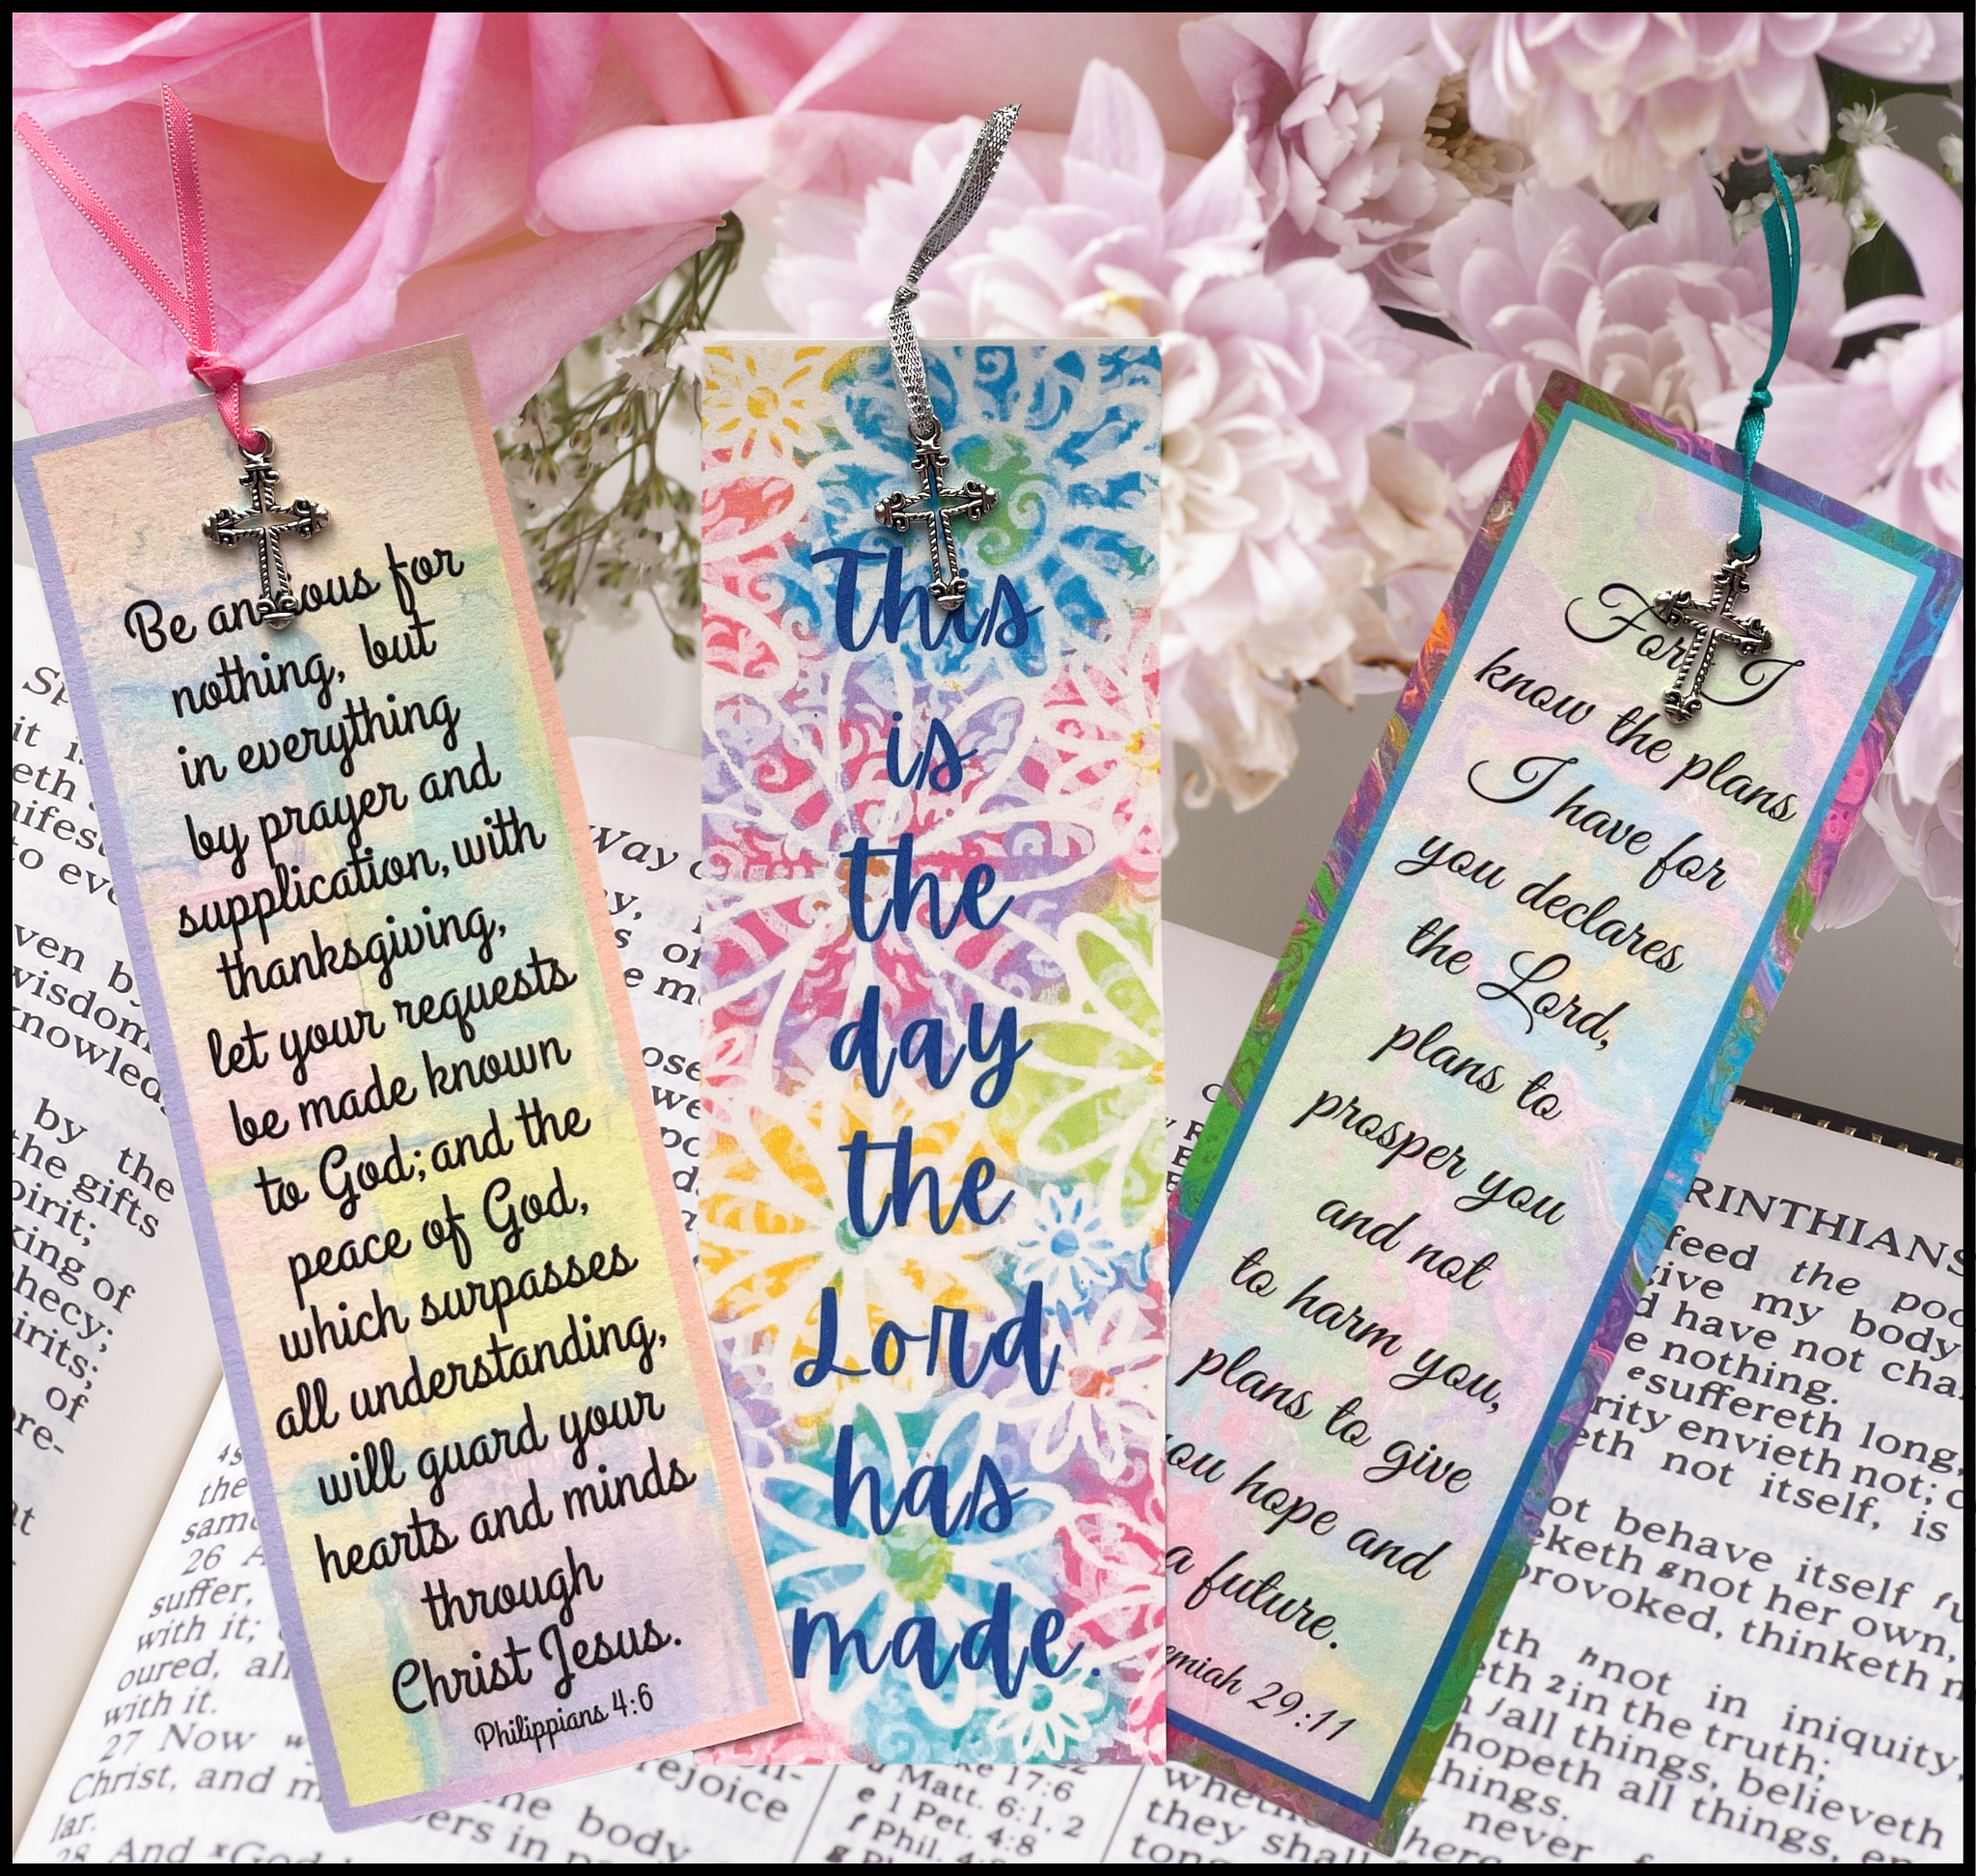 Be anxious for
nothing, but
in everything
by prayer and
supplication, with
thanksgiving,
let your requests
be made known
to God; and the
peace of God,
which surpasses
all understanding,
will guard your
hearts and minds
through
Christ Jesus.
Philippians 4:6
This
is
the
day
the
Lord
has
made.
For I
know the plans
I have for
you declares
the Lord,
plans to
prosper you
and not
to harm you,
plans to give
you hope and
a future.
emiah 29:11
it is
eth
to eve
ven by
wisdom
knowled
by the
the gifts
pirit;
king of
hecy;
irits;
of
ore-
at
the
same
26 A
suffer,
with it;
oured, all
with it.
27 Now
Christ, and m
lar.
28 And God
Way o
rejoice
the body
bers in
ke 17:6
Matt. 6:1, 2
e 1 Pet. 4:8
f Phil. 4:
RINTHIANS
feed the poo
give my body
d have not cha
e nothing.
suffereth long,
rity envieth not; c
eth not itself, is
ot behave itself
eketh not her own,
provoked, thinketh n
th not in iniquity,
eth in the truth;
all things, believeth
hopeth all things, en
things.
never
whethe
they shall
tong